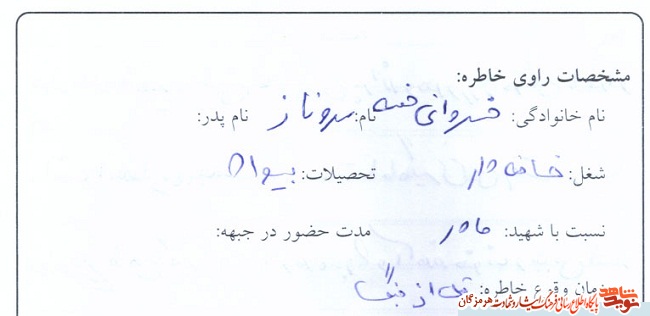 مشخصات راوی خاطره:
نام خانوادگی: خسروانی نام: سروناز نام پدر:
شغل: خانه دار تحصیلات: بیسواد
نسبت با شهید: مادر مدت حضور در جبهه:
زمان وقوع خاطره: قبل از جنگ
نوید شاهد
پایگاه اطلاع رسانی فرهنگ ایثار و شهادت هرمزگان